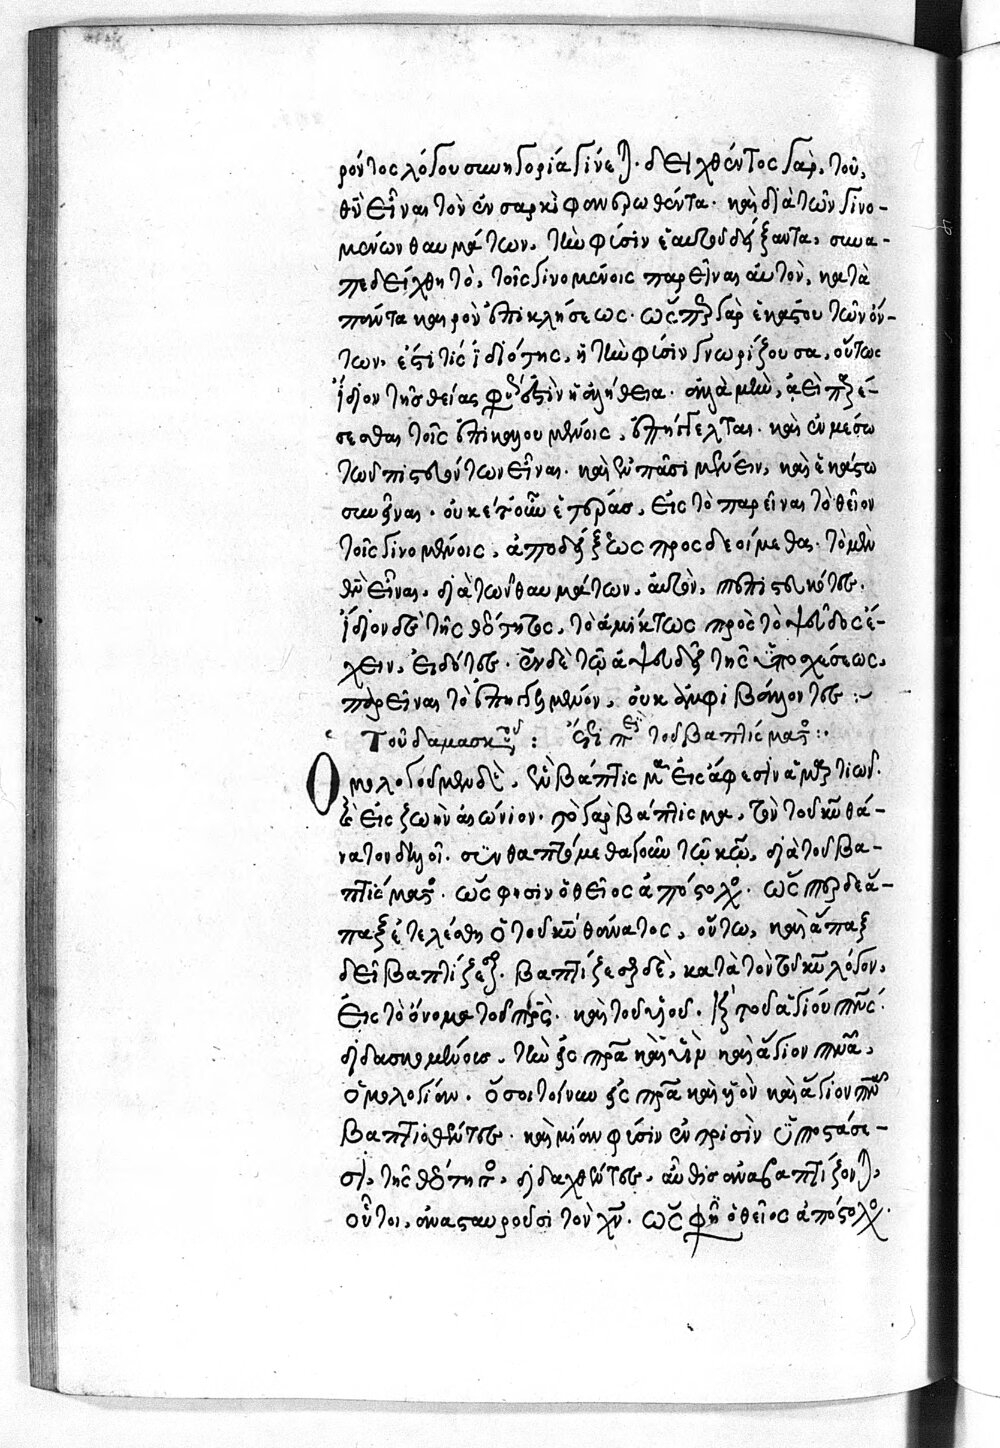 ρόντος λόγου συνηγορία γίνεται. δειχθέντος γὰρ, τοῦ,
θν εἶναι τὸν ἐν σαρκὶ φανερωθέντα. καὶ διὰ τῶν γινο-
μένων θαυμάτων, τὴν φύσιν ἑαυτοῦ δείξαντα, συνα-
πεδείχθη τὸ, τοῖς γινομένοις παρεῖναι αὐτὸν, κατὰ
πάντα καιρὸν ἐπικλήσεως. ὥσπερ γὰρ ἑκάστου τῶν ὄν-
των, ἐστί τις ἰδιότης, ἡ τὴν φύσιν γνωρίζουσα, οὕτως
ἴδιον τῆς θείας φύσεώς ἐστιν ἡ ἀλήθεια. ἀλλὰ μὴν, ἀεὶ παρέ-
σεσθαι τοῖς ἐπικαλουμένοις, ἐπήγγελται. καὶ ἐν μέσω
τῶν πιστευόντων εἶναι. καὶ ἐν πᾶσι μένειν, καὶ ἑκάστω
συνεῖναι. οὐκέτ' ἂν ἑτέρας, εἰς τὸ παρεῖναι τὸ θεῖον
τοῖς γινομένοις, ἀποδείξεως προσδεοίμεθα. τὸ μὲν
θν εἶναι, διὰ τῶν θαυμάτων, αὐτὸν, πεπιστευκότες.
ἴδιον δὲ τῆς θεότητος, τὸ ἀμίκτως πρὸς τὸ ψεῦδος ἔ-
χειν, εἰδότες. ἐν δὲ τῶ ἀψευδεῖ τῆς ὑποσχέσεως,
παρεῖναι τὸ ἐπηγγελμένον, οὐκ ἀμφιβάλλοντες :~
Τοῦ δαμασκηνοῦ : ἔτι περὶ τοῦ βαπτίσματος :·
Ὁμολογοῦμεν δὲ, ἓν βάπτισμα εἰς ἄφεσιν ἁμαρτιῶν.
καὶ εἰς ζωὴν αἰώνιον. τὸ γὰρ βάπτισμα, τὸν τοῦ κυ θά-
νατον δηλοῖ. συνθαπτόμεθα γοῦν τῶ κω, διὰ τοῦ βα-
πτίσματος. ὥς φησιν ὁ θεῖος ἀπόστολος. ὥσπερ δὲ ἅ-
παξ ἐτελέσθη ὁ τοῦ κυ θάνατος, οὕτω, καὶ ἅπαξ
δεῖ βαπτίζεσθαι. βαπτίζεσθαι δὲ, κατὰ τὸν τοῦ κυ λόγον,
εἰς τὸ ὄνομα τοῦ πρς. καὶ τοῦ υἱοῦ. καὶ τοῦ ἁγίου πνς.
διδασκομένοις, τὴν εἰς πρα καὶ υἱὸν καὶ ἅγιον πνα,
ὁμολογίαν. ὅσοι τοίνυν εἰς πρα καὶ υἱὸν καὶ ἅγιον πνα
βαπτισθέντες. καὶ μίαν φύσιν ἐν τρισὶν ὑποστάσε-
σι, τῆς θεότητος, διδαχθέντες, αὖθις ἀναβαπτίζονται,
οὗτοι, ἀνασταυροῦσι τὸν χν. ὥς φη ὁ θεῖος ἀπόστολος.